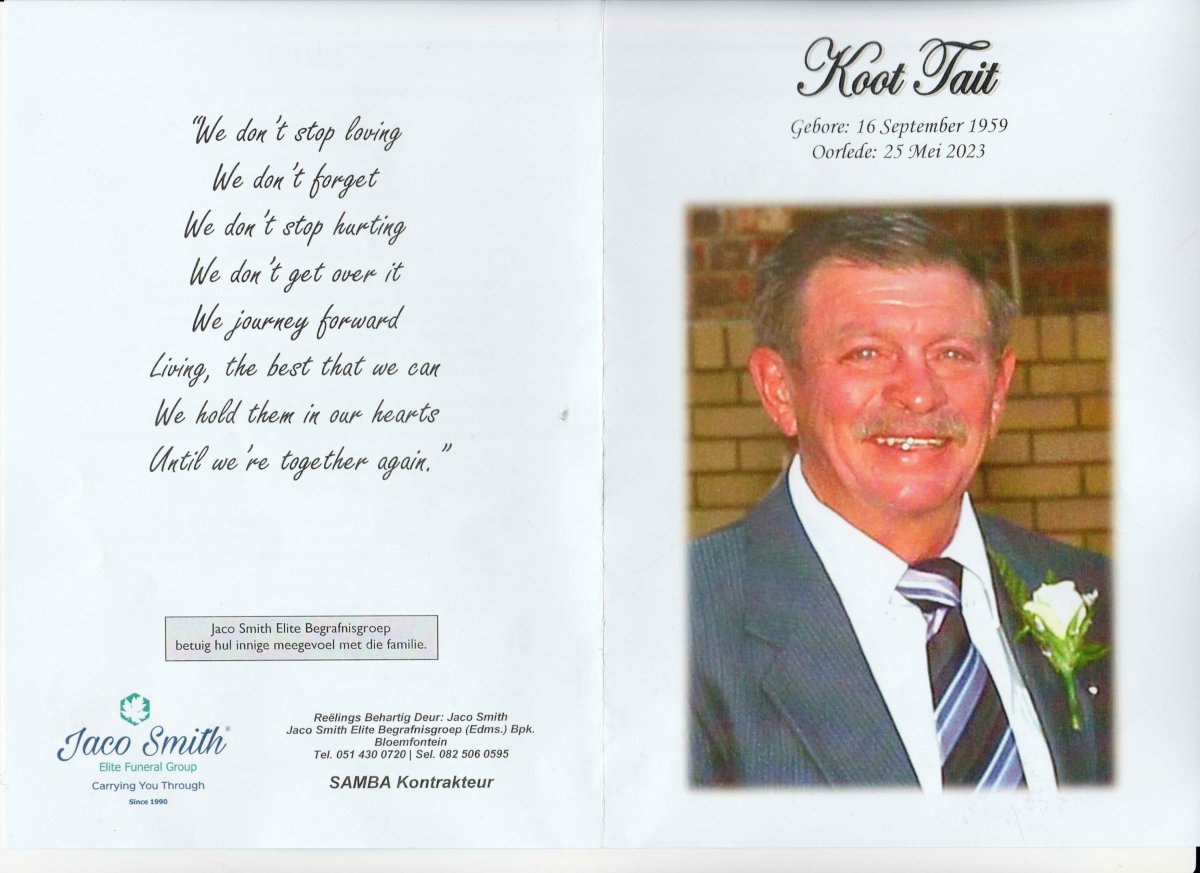 "We don't stop loving
We don't forget
We don't stop hurting
We don't get over it
We journey forward
Living, the best that we can
We hold them in our hearts
Until we're together again."
Jaco Smith Elite Begrafnisgroep
betuig hul innige meegevoel met die familie.
Jaco Smith®
Elite Funeral Group
Carrying You Through
Since 1990
Reëlings Behartig Deur: Jaco Smith
Jaco Smith Elite Begrafnisgroep (Edms.) Bpk.
Bloemfontein
Tel. 051 430 0720 | Sel. 082 506 0595
SAMBA Kontrakteur
Koot Tait
Gebore: 16 September 1959
Oorlede: 25 Mei 2023